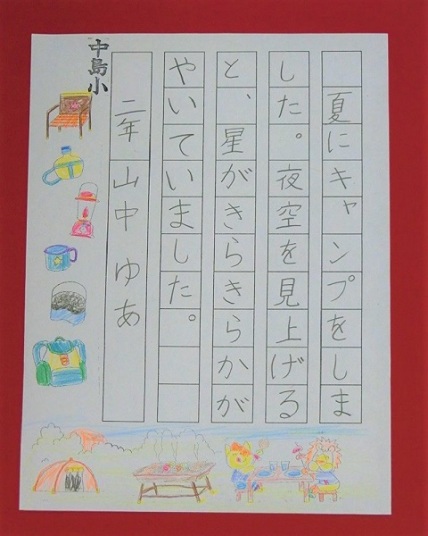 夏にキャンプをしま
した。夜空を見上げる
と、星がきらきらかが
やいていました。
二年 山中 ゆあ
中島小